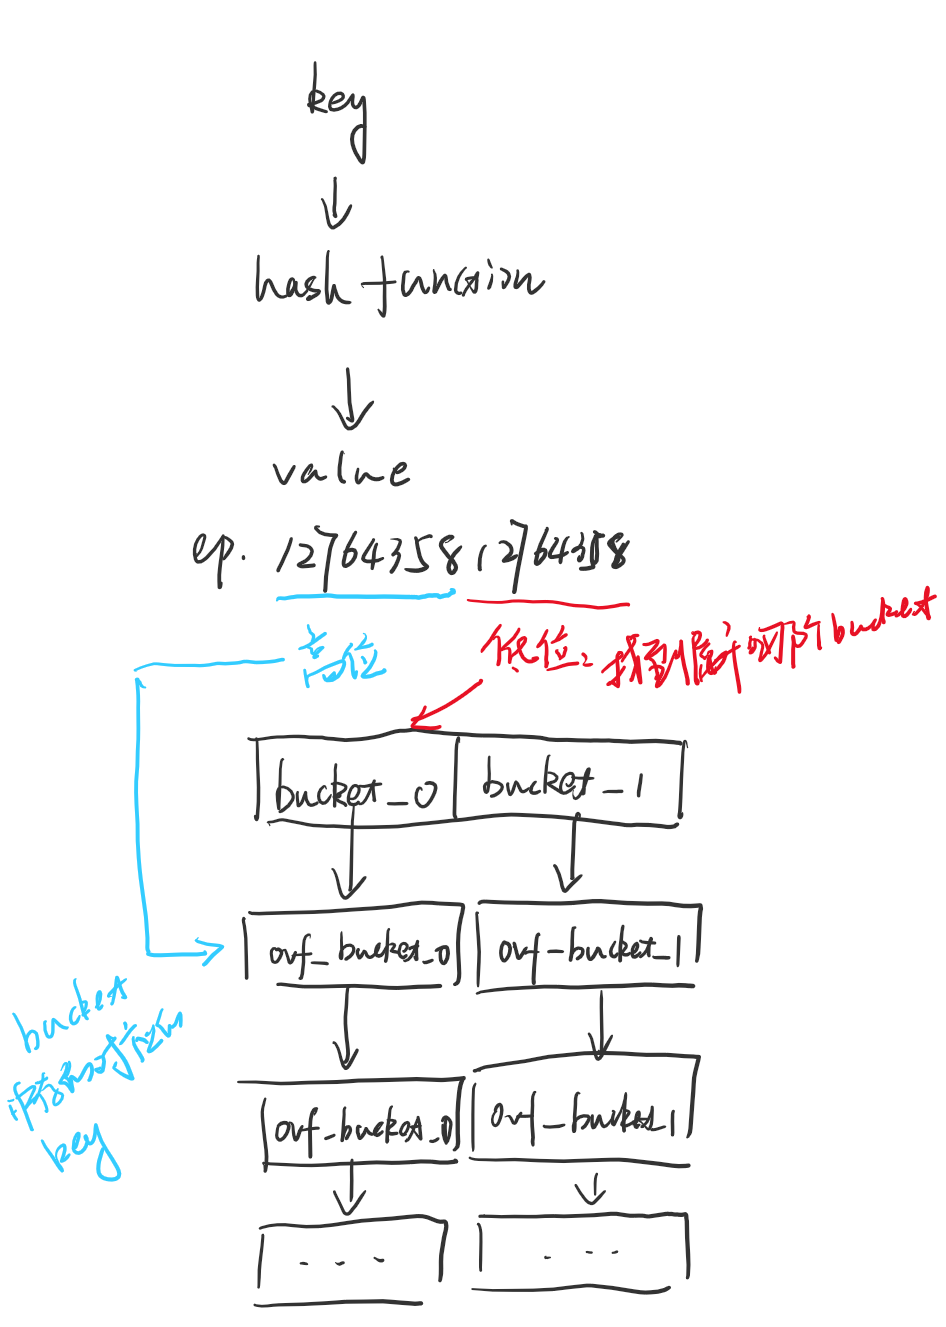 key
hash function
value
ep. 12764358 12764358
高位
低位: 找到属于哪个bucket
bucket_0
bucket_1
ovf_bucket_0
ovf-bucket_1
bucket
对应的
key
ovf_bucket_0
ovf_bucket_1
...
...